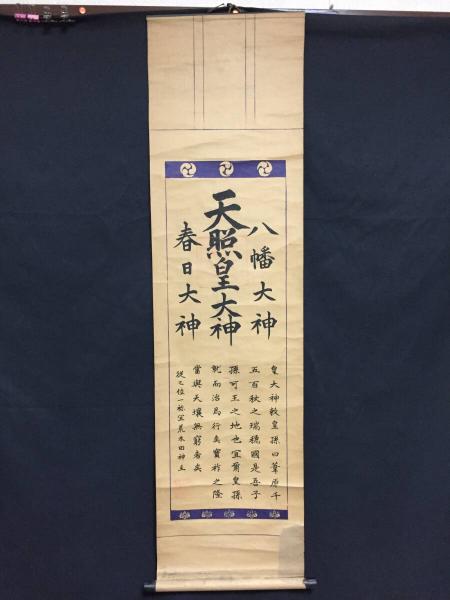 八幡大神
天照皇大神
春日大神
皇大神敕皇孫曰葦原千
五百秋之瑞穗國是吾子
孫可王之地也宜爾皇孫
就而治焉行矣寶祚之隆
當與天壤無窮者矣
從乙位一祢宜荒木田神主